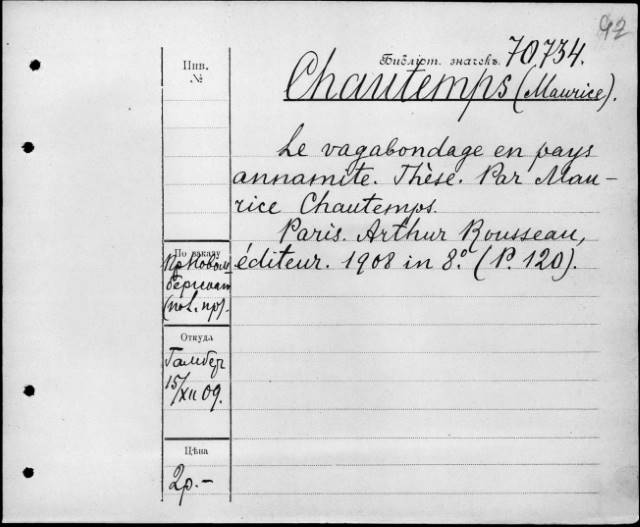 92
Инв.
№
Библіот. значекъ 70,734.
Chautemps (Maurice).
Le vagabondage en pays
annamite. Thèse. Par Mau-
rice Chautemps.
Paris. Arthur Rousseau,
éditeur. 1908 in 8.° (P. 120).
По заказу
(пол. пр).
Откуда
15/XII 09.
Цѣна
2р.-